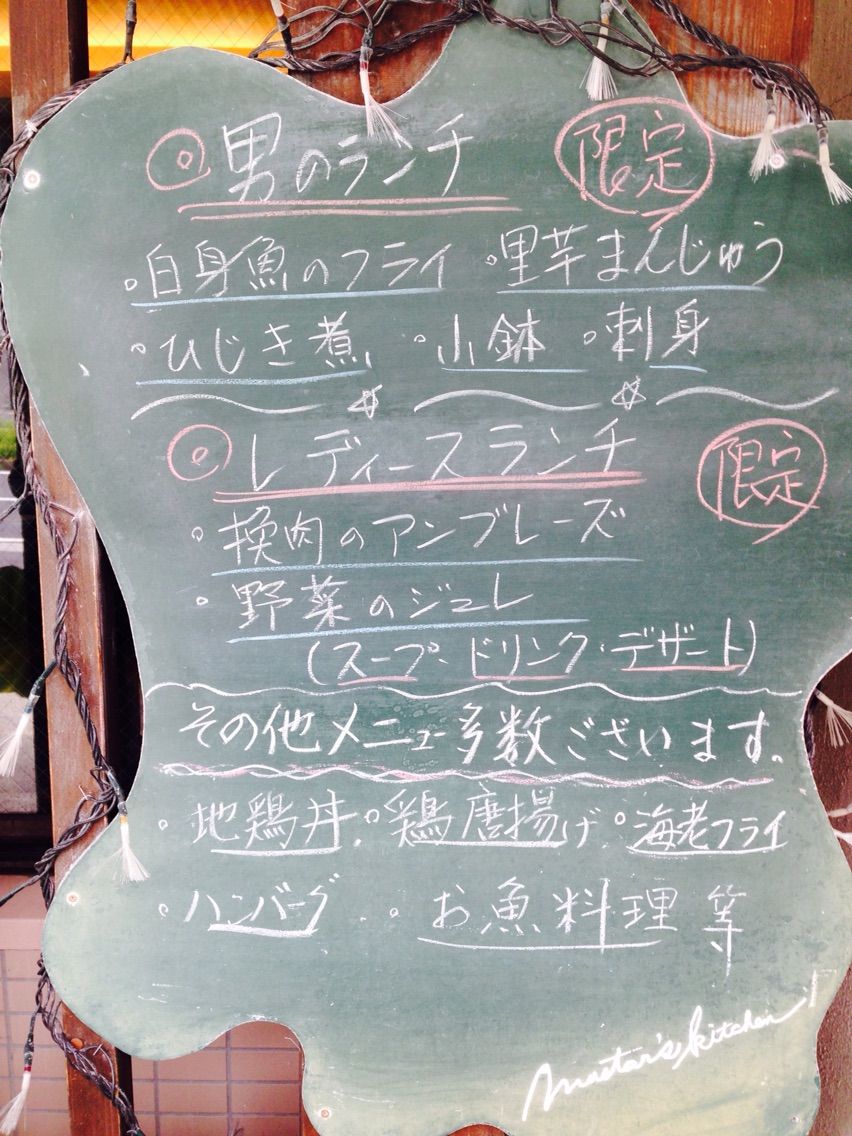 ◎男のランチ 限定
・白身魚のフライ ・里芋まんじゅう
・ひじき煮 ・小鉢 ・刺身
◎レディースランチ 限定
・換肉のアンブレーズ
・野菜のジュレ
(スープ・ドリンク・デザート)
その他メニュー多数ございます。
・地鶏丼 ・鶏唐揚げ ・海老フライ
・ハンバーグ ・お魚料理 等
Mastar's kitchen